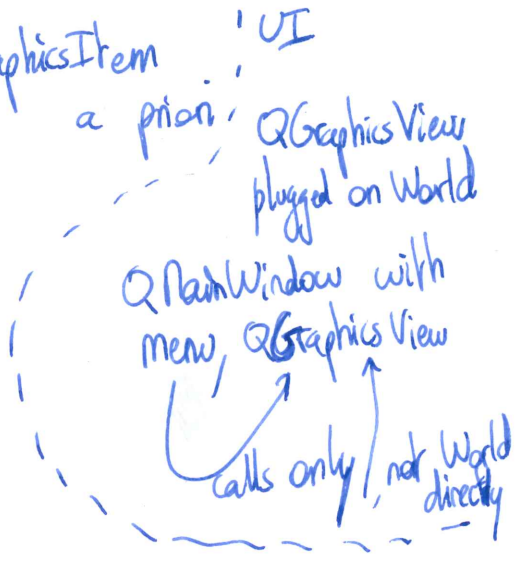 UI
aphicsItem
a priori
QGraphicsView
plugged on World
QMainWindow with
menu, QGraphicsView
calls only, not World
directly